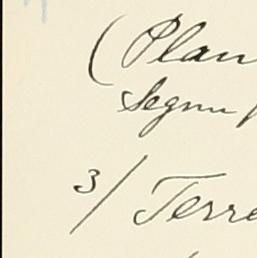 (Plan
Segun
3/ Terre